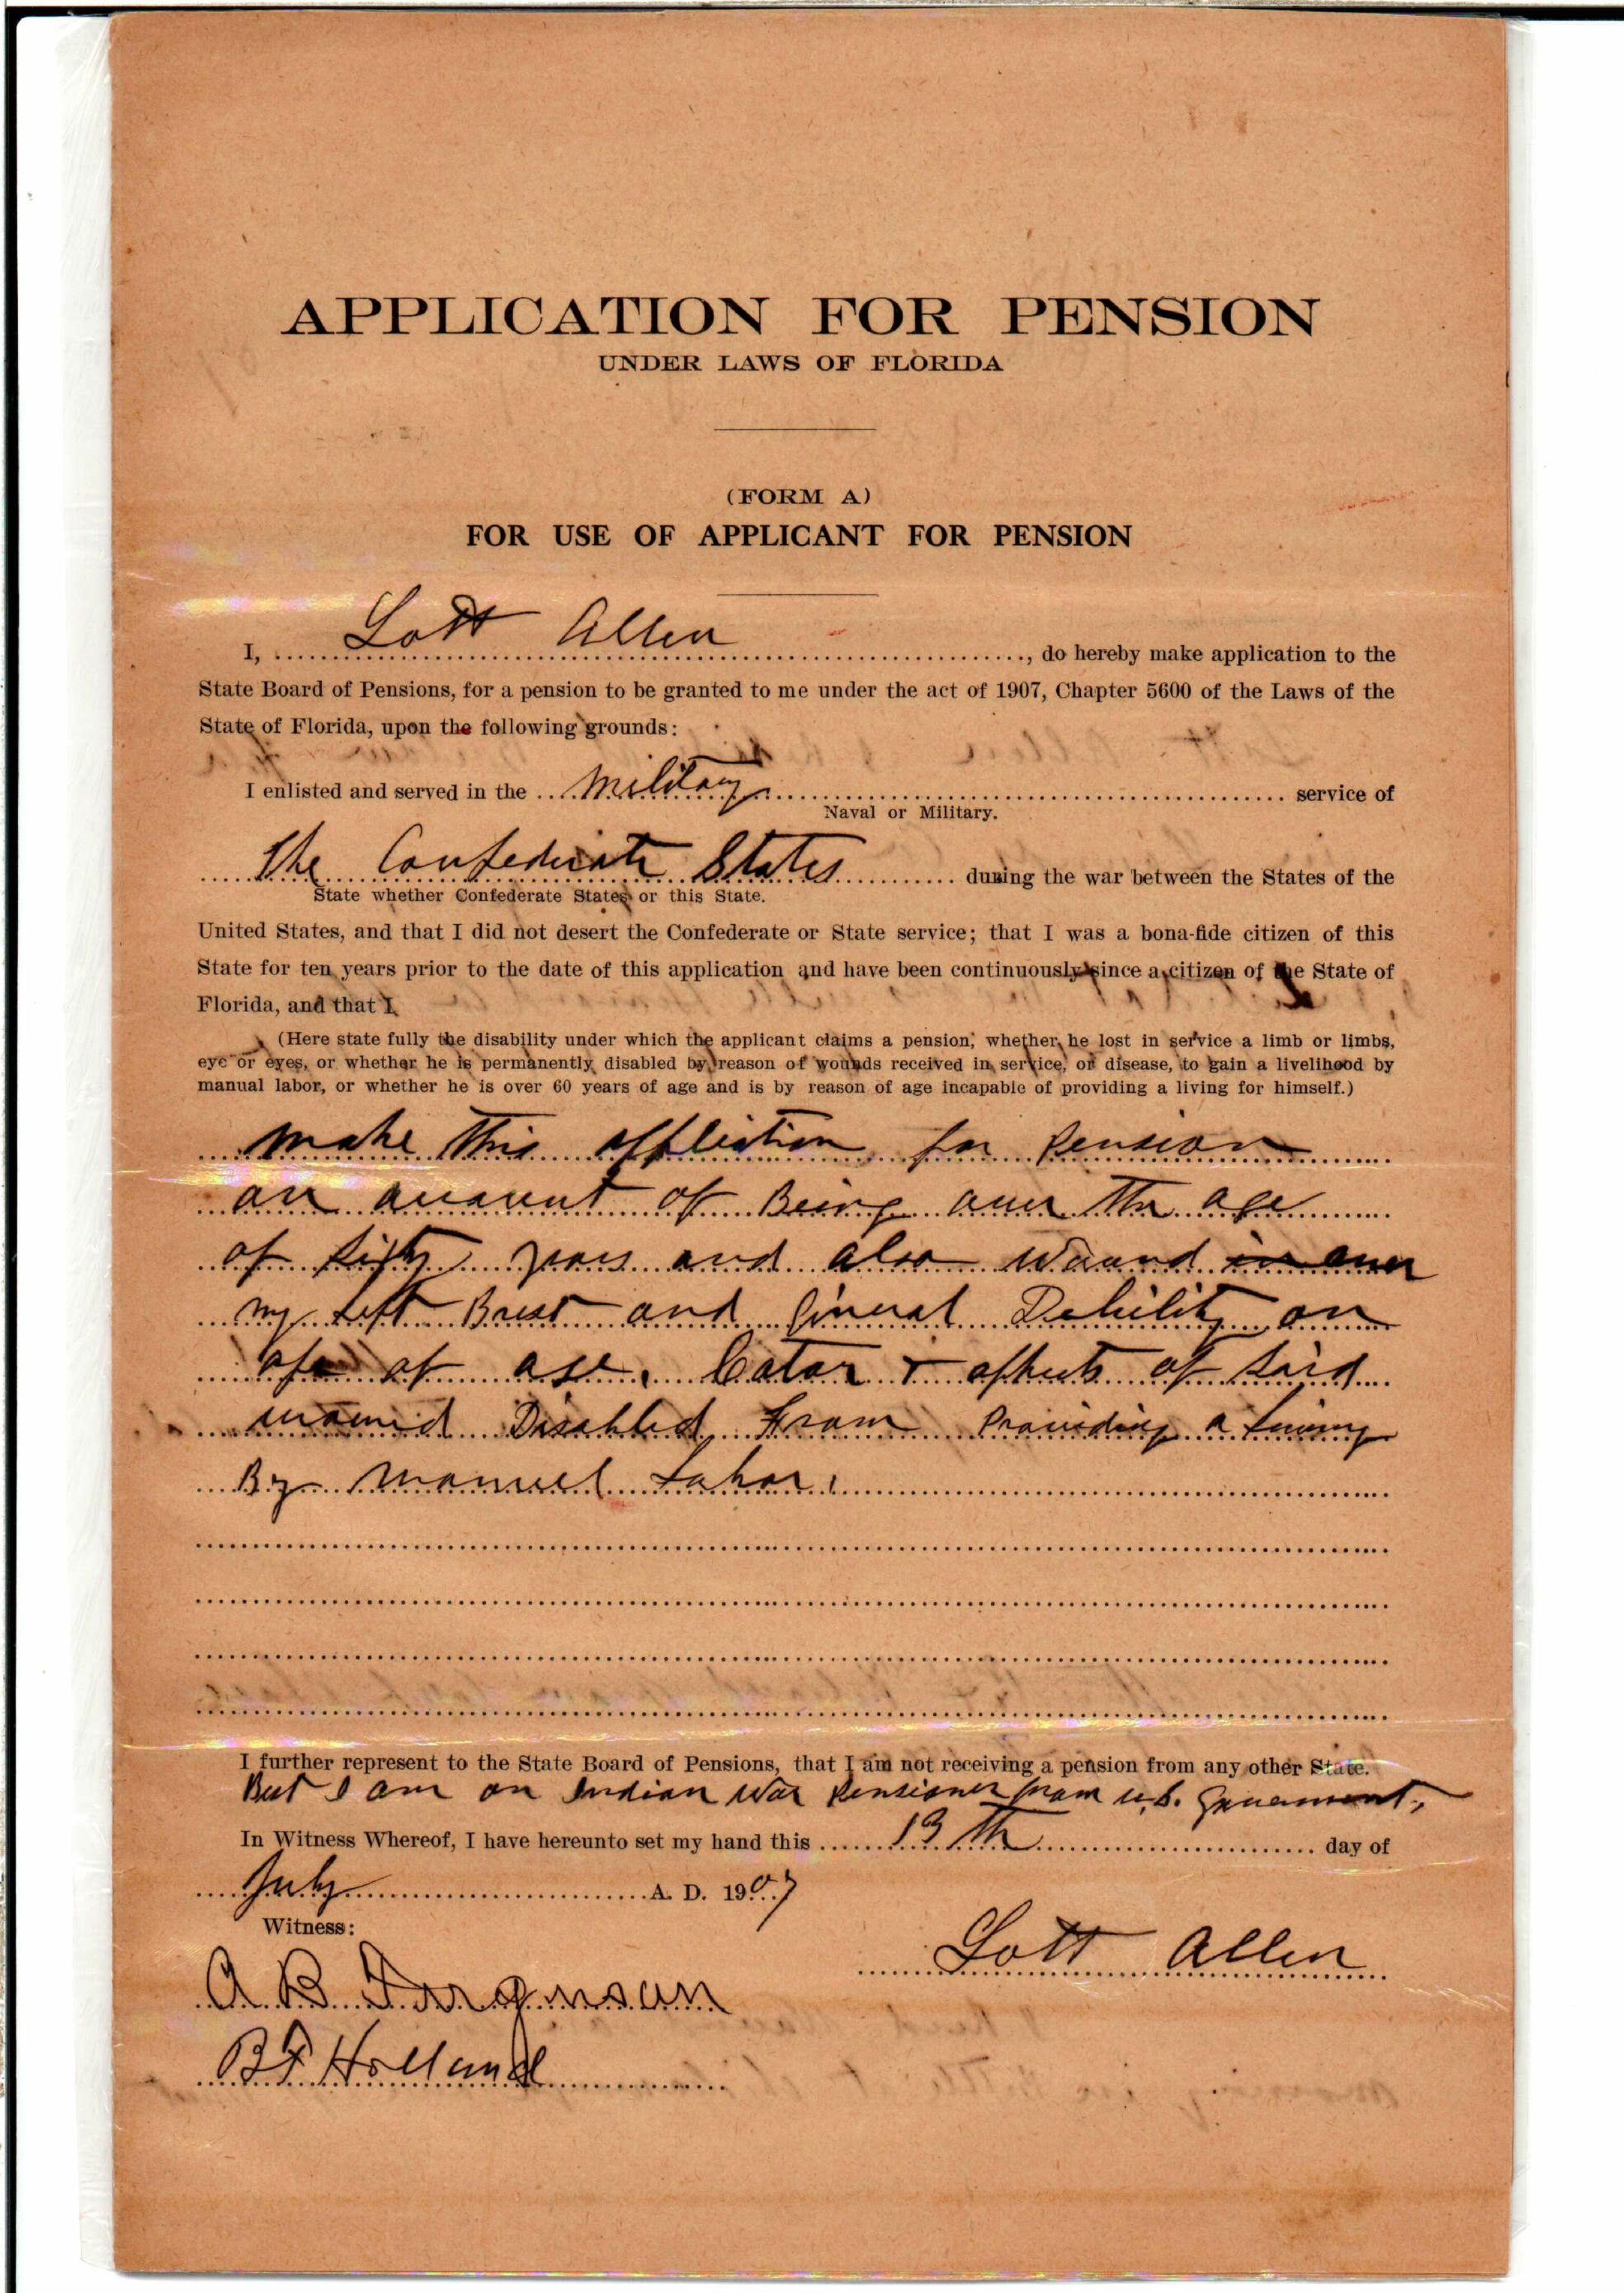 APPLICATION FOR PENSION
UNDER LAWS OF FLORIDA
(FORM A)
FOR USE OF APPLICANT FOR PENSION
I, Lott Allen, do hereby make application to the
State Board of Pensions, for a pension to be granted to me under the act of 1907, Chapter 5600 of the Laws of the
State of Florida, upon the following grounds:
I enlisted and served in the Military service of
Naval or Military.
The Confederate States during the war between the States of the
State whether Confederate States or this State.
United States, and that I did not desert the Confederate or State service; that I was a bona-fide citizen of this
State for ten years prior to the date of this application and have been continuously since a citizen of the State of
Florida, and that I
(Here state fully the disability under which the applicant claims a pension, whether he lost in service a limb or limbs,
eye or eyes, or whether he is permanently disabled by reason of wounds received in service, or disease, to gain a livelihood by
manual labor, or whether he is over 60 years of age and is by reason of age incapable of providing a living for himself.)
make this appliction for Pension
on account of Being over the age
of sixty years and also Wound in over
my Left Brest and General Debility on
of age. Catar + affects of said
wound Disabled From Providing a Living
By Manuel Labor.
I further represent to the State Board of Pensions, that I am not receiving a pension from any other State.
But I am an Indian War Pensioner from U.S. Goverment.
In Witness Whereof, I have hereunto set my hand this 13th day of
July A. D. 1907
Witness:
Lott Allen
A B
B F Holland